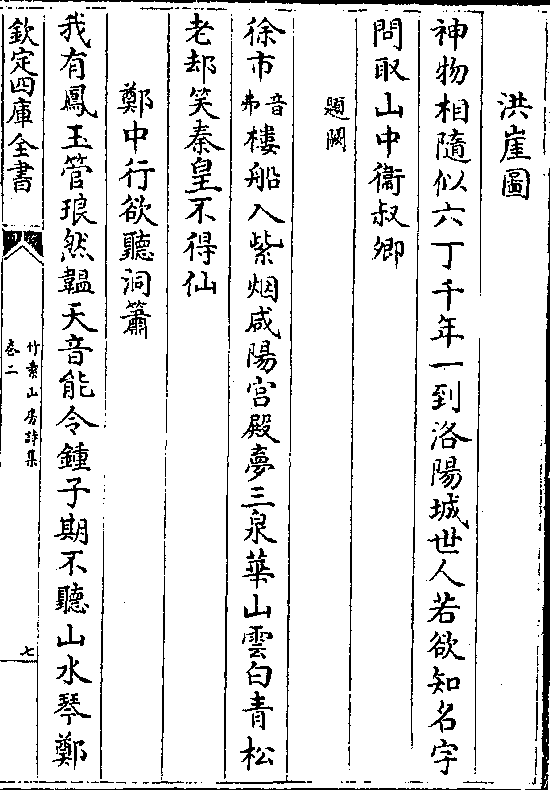 洪崖圖
神物相隨似六丁千年一到洛陽城世人若欲知名字
問取山中衞叔卿
題闕
徐市音弗樓船入紫烟咸陽宮殿夢三泉華山雲白青松
老却笑秦皇不得仙
鄭中行欲聽洞簫
我有鳳玉管琅然韞天音能令鍾子期不聽山水琴鄭
欽定四庫全書
竹素山房詩集
卷二
七